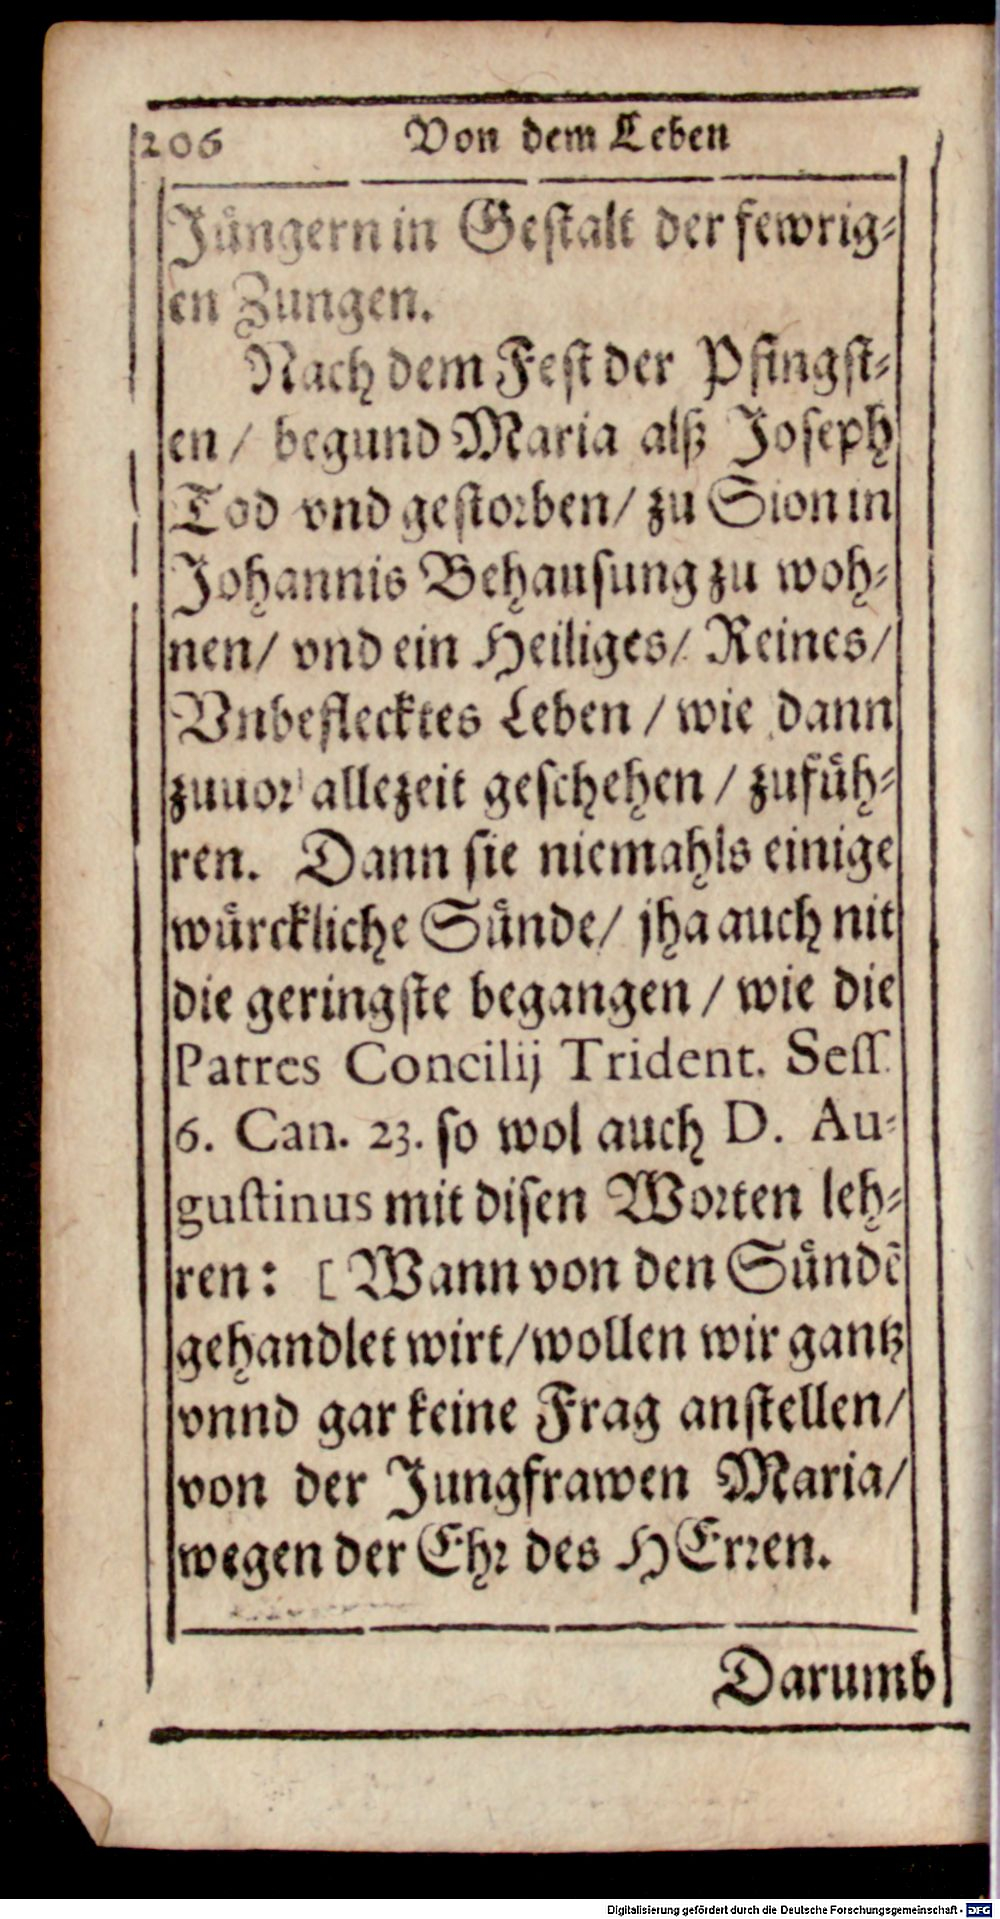 206 Von dem Leben
Jüngern in Gestalt der fewrig-
en Zungen.
Nach dem Fest der Pfingst-
en / begund Maria alß Joseph
Tod vnd gestorben / zu Sion in
Johannis Behausung zu woh-
nen / vnd ein Heiliges / Reines /
Vnbeflecktes Leben / wie dann
zuuor allezeit geschehen / zuführ-
ren. Dann sie niemahls einige
würckliche Sünde / jha auch nit
die geringste begangen / wie die
Patres Concilij Trident. Sess.
6. Can. 23. so wol auch D. Au-
gustinus mit disen Worten leh-
ren: [Wann von den Sündẽ
gehandlet wirt / wollen wir gantz
vnnd gar keine Frag anstellen /
von der Jungfrawen Maria /
wegen der Ehr des HErren.
Darumb
Digitalisierung gefördert durch die Deutsche Forschungsgemeinschaft - DFG